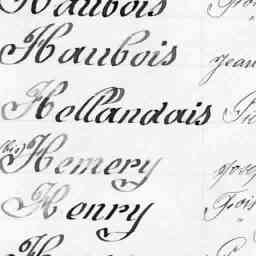 Haubois
Haubois Jean
Hellandais
(bis) Hemery
Henry